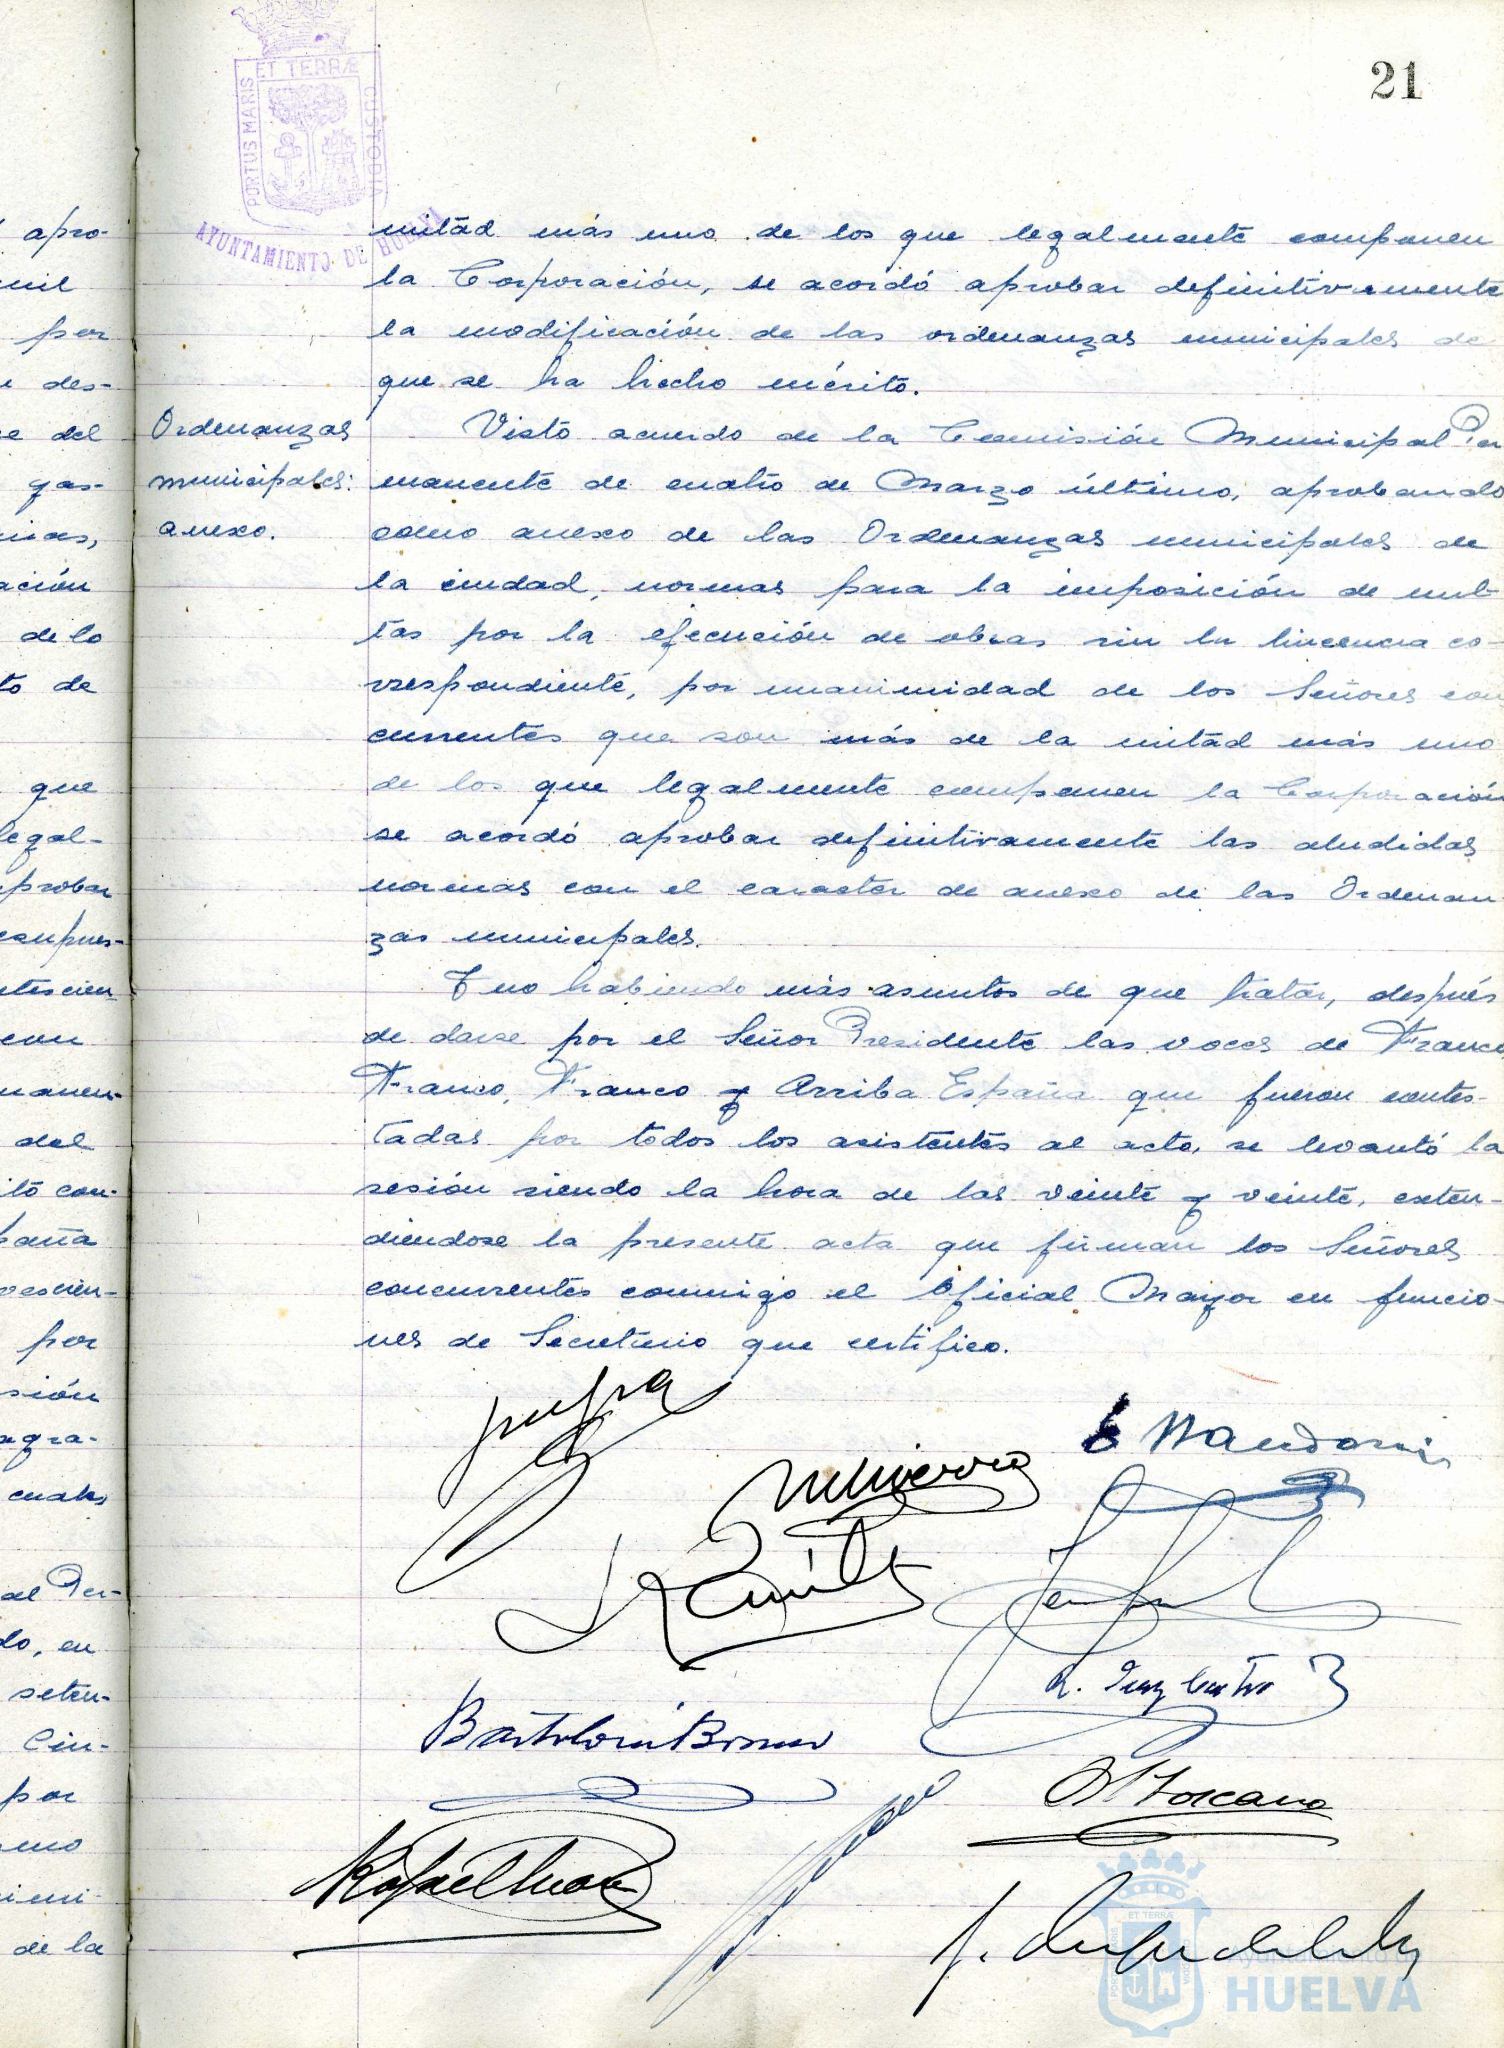 21
PORTUS MARIS ET TERRÆ CUSTODIA
AYUNTAMIENTO DE HUELVA
mitad más uno de los que legalmente componen
la Corporación, se acordó aprobar definitivamente
la modificación de las ordenanzas municipales de
que se ha hecho mérito.
Ordenanzas
municipales:
anexo.
Visto acuerdo de la Comisión Municipal Per
manente de cuatro de Marzo último, aprobando
como anexo de las Ordenanzas municipales de
la ciudad, normas para la imposición de mul-
tas por la ejecución de obras sin la lincencia co-
rrespondiente, por unanimidad de los Señores con
currentes que son más de la mitad más uno
de los que legalmente componen la Corporación
se acordó aprobar definitivamente las aludidas
normas con el caracter de anexo de las Ordenan
zas municipales.
Y no habiendo más asuntos de que tratar, después
de darse por el Señor Presidente las voces de Franco,
Franco, Franco y Arriba España que fueron contes-
tadas por todos los asistentes al acto, se levantó la
sesión siendo la hora de las veinte y veinte, exten-
diéndose la presente acta que firman los Señores
concurrentes conmigo el Oficial Mayor en funcio-
nes de Secretario que certifico.
Rafael
Toscano
Ayuntamiento de
HUELVA
apro-
mil
por
des-
del
gas-
ación
de lo
de
que
legal-
probar
con
del
con-
por
sión
agra-
cuales
al Per-
do, en
seten-
Cin-
por
de la